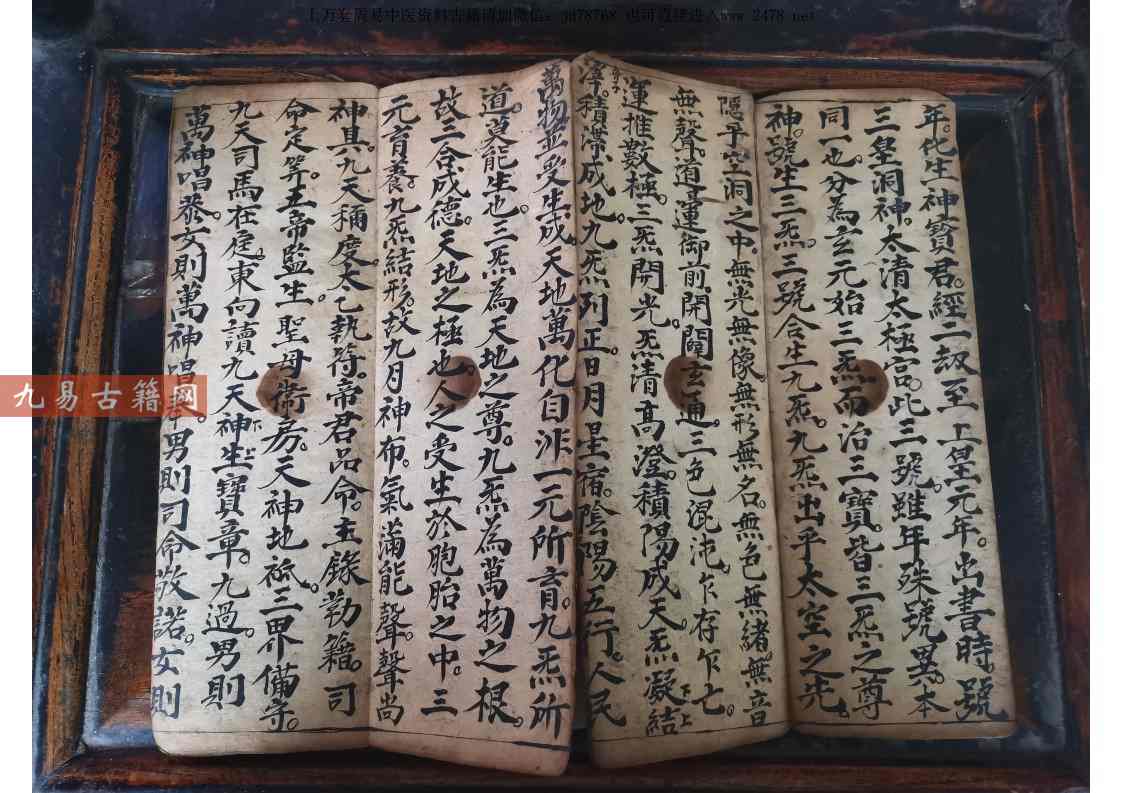 上万套周易中医资料古籍请加微信：jd78768 也可直接进入www.2478.net
年。化生神寶君。經二劫至上皇元年。出書時。號
三皇洞神。太清太極宮。此三號雖年殊號異。本
同一也。分為玄元始三炁而治三寶。皆三炁之尊
神。號生三炁。三號合生九炁。九炁出乎太空之先。
隱乎空洞之中。無光無像。無形無名。無色無緒。無音
無聲。道運御前。開闢玄通。三色混沌乍存乍亡。
運推數極。三炁開光。炁清高澄。積陽成天。炁凝結
滓。積滯成地。九炁列正。日月星宿。陰陽五行。人民
萬物並受生成。天地萬化自非一元所育。九炁所
道。莫能生也。三炁為天地之尊。九炁為萬物之根。
故三合成德。天地之極也。人之受生於胞胎之中。三
元育養。九炁結形。故九月神布。氣滿能聲。聲尚
神具。九天稱慶。太乙執符。帝君品命。主錄勒籍。司
命定筭。五帝監生。聖母衛房。天神地祇。三界備守。
九天司馬在庭。東向讀九天神生寶章。九過。男則
萬神唱恭。女則萬神唱奉。男則司命敬諾。女則
九易古籍网